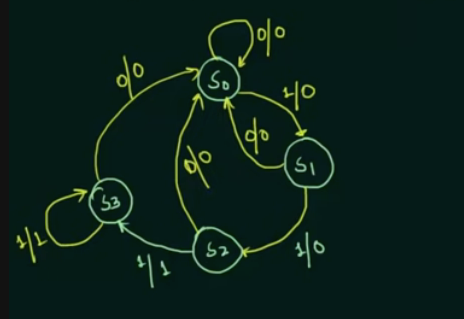 0/0
0/0
S0
1/0
0/0
0/0
S1
S3
1/1
S2
1/1
1/0